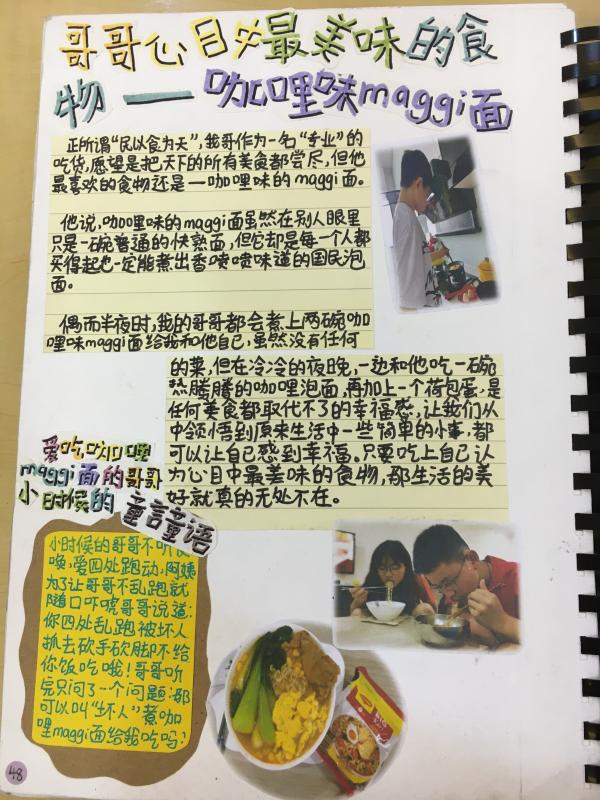 哥哥心目中最美味的食
物——咖哩味maggi面
正所谓“民以食为天”,我哥作为一名“专业”的
吃货,愿望是把天下的所有美食都尝尽,但他
最喜欢的食物还是——咖哩味的maggi面。
他说,咖哩味的maggi面虽然在别人眼里
只是一碗普通的快熟面,但它却是每一个人都
买得起也一定能煮出香喷喷味道的国民泡
面。
偶而半夜时,我的哥哥都会煮上两碗咖
哩味maggi面给我和他自己,虽然没有任何
的菜,但在冷冷的夜晚,一边和他吃一碗
热腾腾的咖哩泡面,再加上一个荷包蛋,是
任何美食都取代不了的幸福感,让我们从
中领悟到原来生活中一些简单的小事,都
可以让自己感到幸福。只要吃上自己认
为心目中最美味的食物,那生活的美
好就真的无处不在。
爱吃咖哩
maggi面的哥哥
小时候的
童言童语
小时候的哥哥不听使
唤,爱四处跑动,阿姨
为了让哥哥不乱跑就
随口吓唬哥哥说道:
你四处乱跑被坏人
抓去砍手砍脚不给
你饭吃哦!哥哥听
完只问了一个问题:那
可以叫“坏人”煮咖
哩maggi面给我吃吗?
48